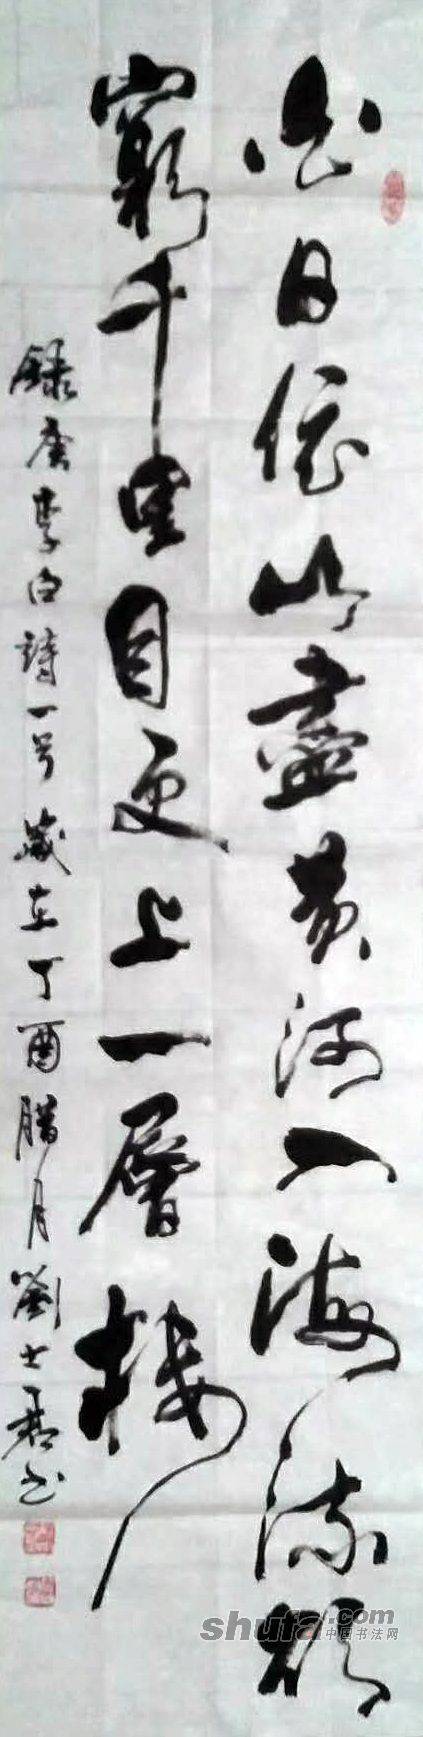 白日依山盡黄河入海流欲
窮千里目更上一層樓
録唐李白詩一首歲在丁酉腊月劉士君书
shufa.com
中国书法网